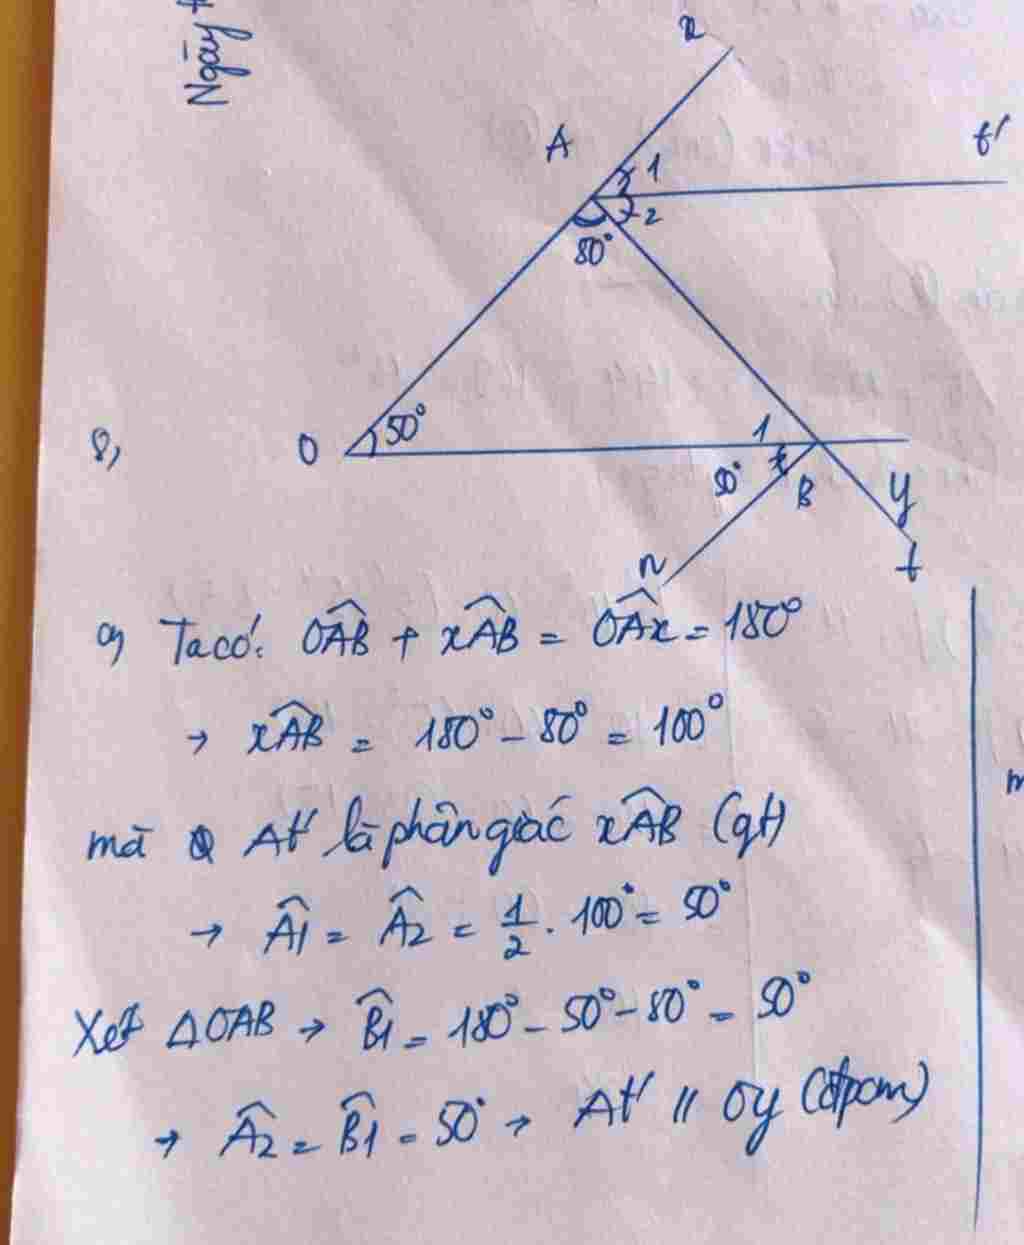 Ngày
x
A
1
t'
2
80°
50°
8,
O
1
50°
B
y
n
t
a, Ta có: OAB + xAB = OAx = 180°
→ xAB = 180° - 80° = 100°
mà At' là phân giác xAB (gt)
→ A1 = A2 = 1/2 . 100° = 50°
Xét ΔOAB → B1 = 180° - 50° - 80° = 50°
→ A2 = B1 = 50° → At' // Oy (đpcm)